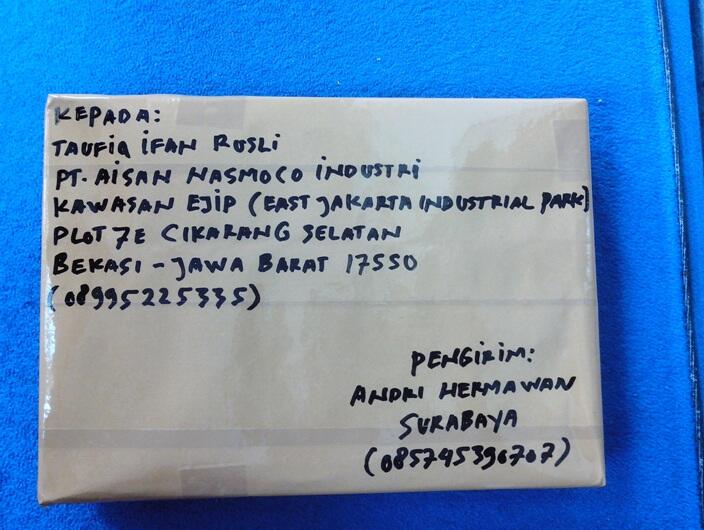 KEPADA:
TAUFIQ IFAN RUSLI
PT. AISAN NASMOCO INDUSTRI
KAWASAN EJIP (EAST JAKARTA INDUSTRIAL PARK)
PLOT 7E CIKARANG SELATAN
BEKASI - JAWA BARAT 17550
(08995225335)
PENGIRIM:
ANDRI HERMAWAN
SURABAYA
(085745396707)